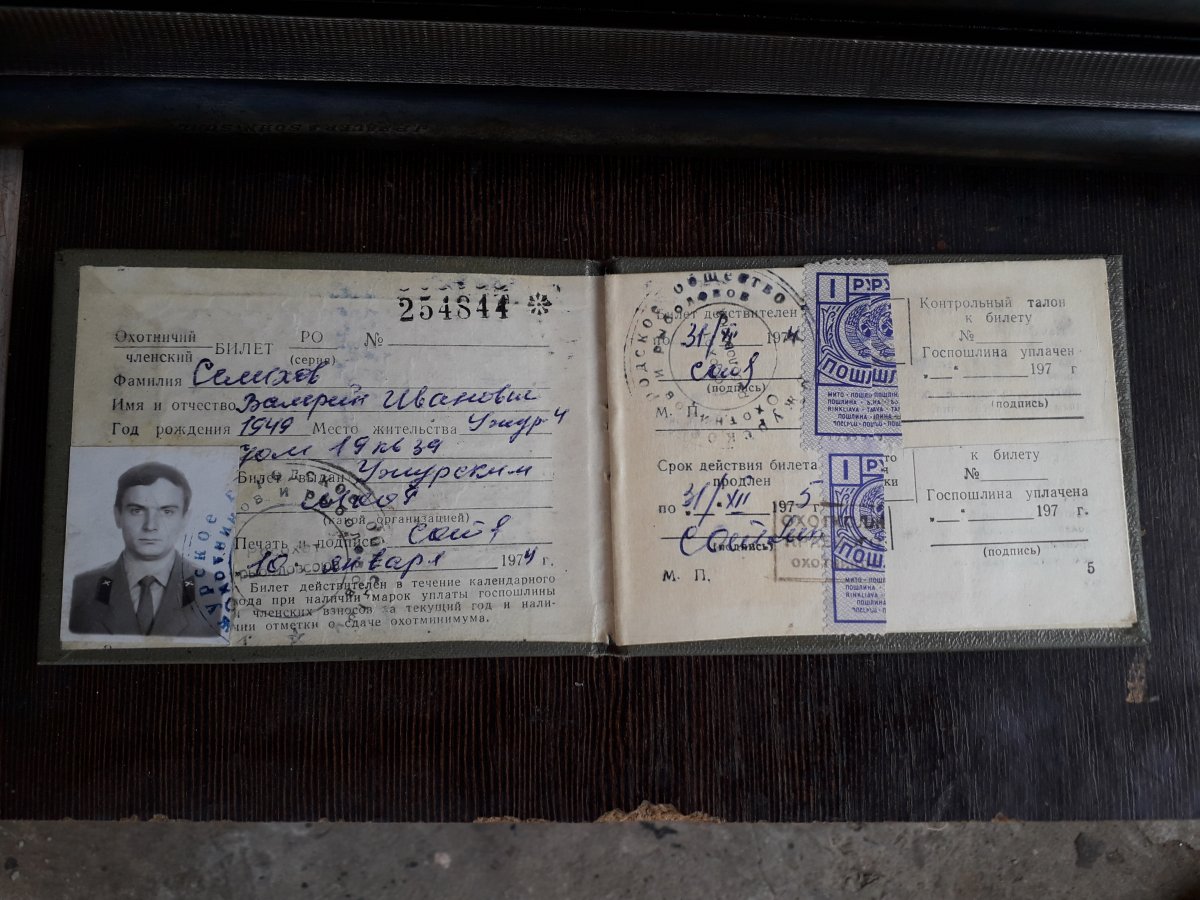 254844
Охотничий
членский БИЛЕТ РО №
(серия)
Фамилия Селихов
Имя и отчество Валерий Иванович
Год рождения 1949 Место жительства Ужур-4
дом 19 кв 39
Билет выдан Ужурским
(какой организацией)
Печать и подпись
10 января 1974 г.
Билет действителен в течение календарного
года при наличии марок уплаты госпошлины
и членских взносов за текущий год и нали-
чии отметки о сдаче охотминимума.
УРСКОЕ
ОХОТНИК
Билет действителен
по 31/XII 1974
(подпись)
М. П.
ОБЩЕСТВО
РЫБОЛОВОВ
Срок действия билета
продлен
по 31/XII 1975
(подпись)
М. П.
1 РУ
ПОШЛ
1 РУ
ПОШЛ
Контрольный талон
к билету
№
Госпошлина уплачен
„ “ 197 г
(подпись)
к билету
№
Госпошлина уплачена
„ “ 197 г.
(подпись)
5